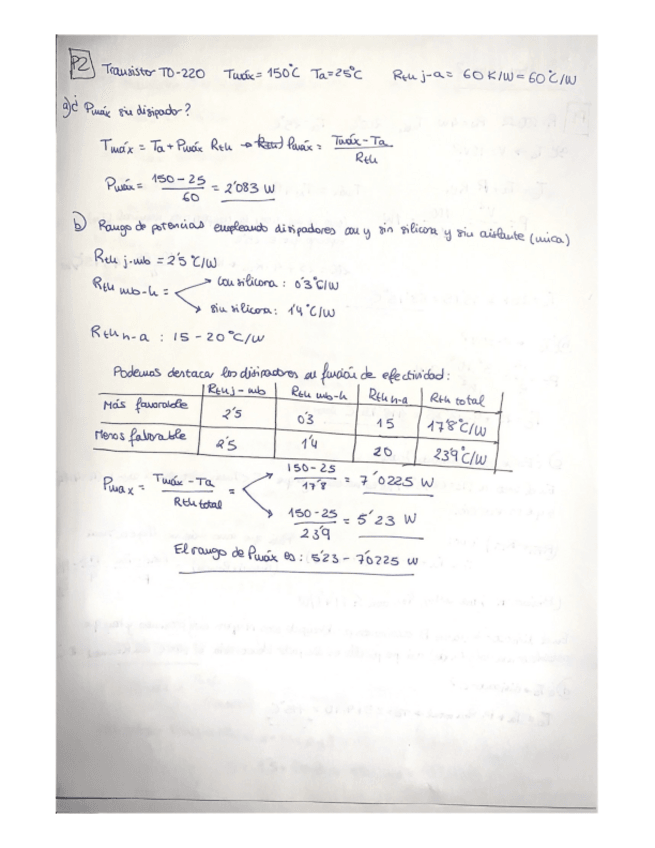 P2 Transistor TO-220 Tmáx = 150°C Ta = 25°C Rth j-a = 60 K/W = 60°C/W
a) ¿Pmáx sin disipador?
Tmáx = Ta + Pmáx Rth → Pmáx = Tmáx - Ta / Rth
Pmáx = 150 - 25 / 60 = 2'083 W
b) Rango de potencias empleando disipadores con y sin silicona y sin aislante (mica)
Rth j-mb = 2'5 °C/W
Rth mb-h = con silicona: 0'3 °C/W
sin silicona: 1'4 °C/W
Rth h-a : 15 - 20 °C/W
Podemos destacar los disipadores en función de efectividad:
Rth j-mb Rth mb-h Rth h-a Rth total
Más favorable 2'5 0'3 15 17'8 °C/W
Menos faborable 2'5 1'4 20 23'9 °C/W
Pmax = Tmáx - Ta / Rth total = 150 - 25 / 17'8 = 7'0225 W
150 - 25 / 23'9 = 5'23 W
El rango de Pmáx es: 5'23 - 7'0225 W